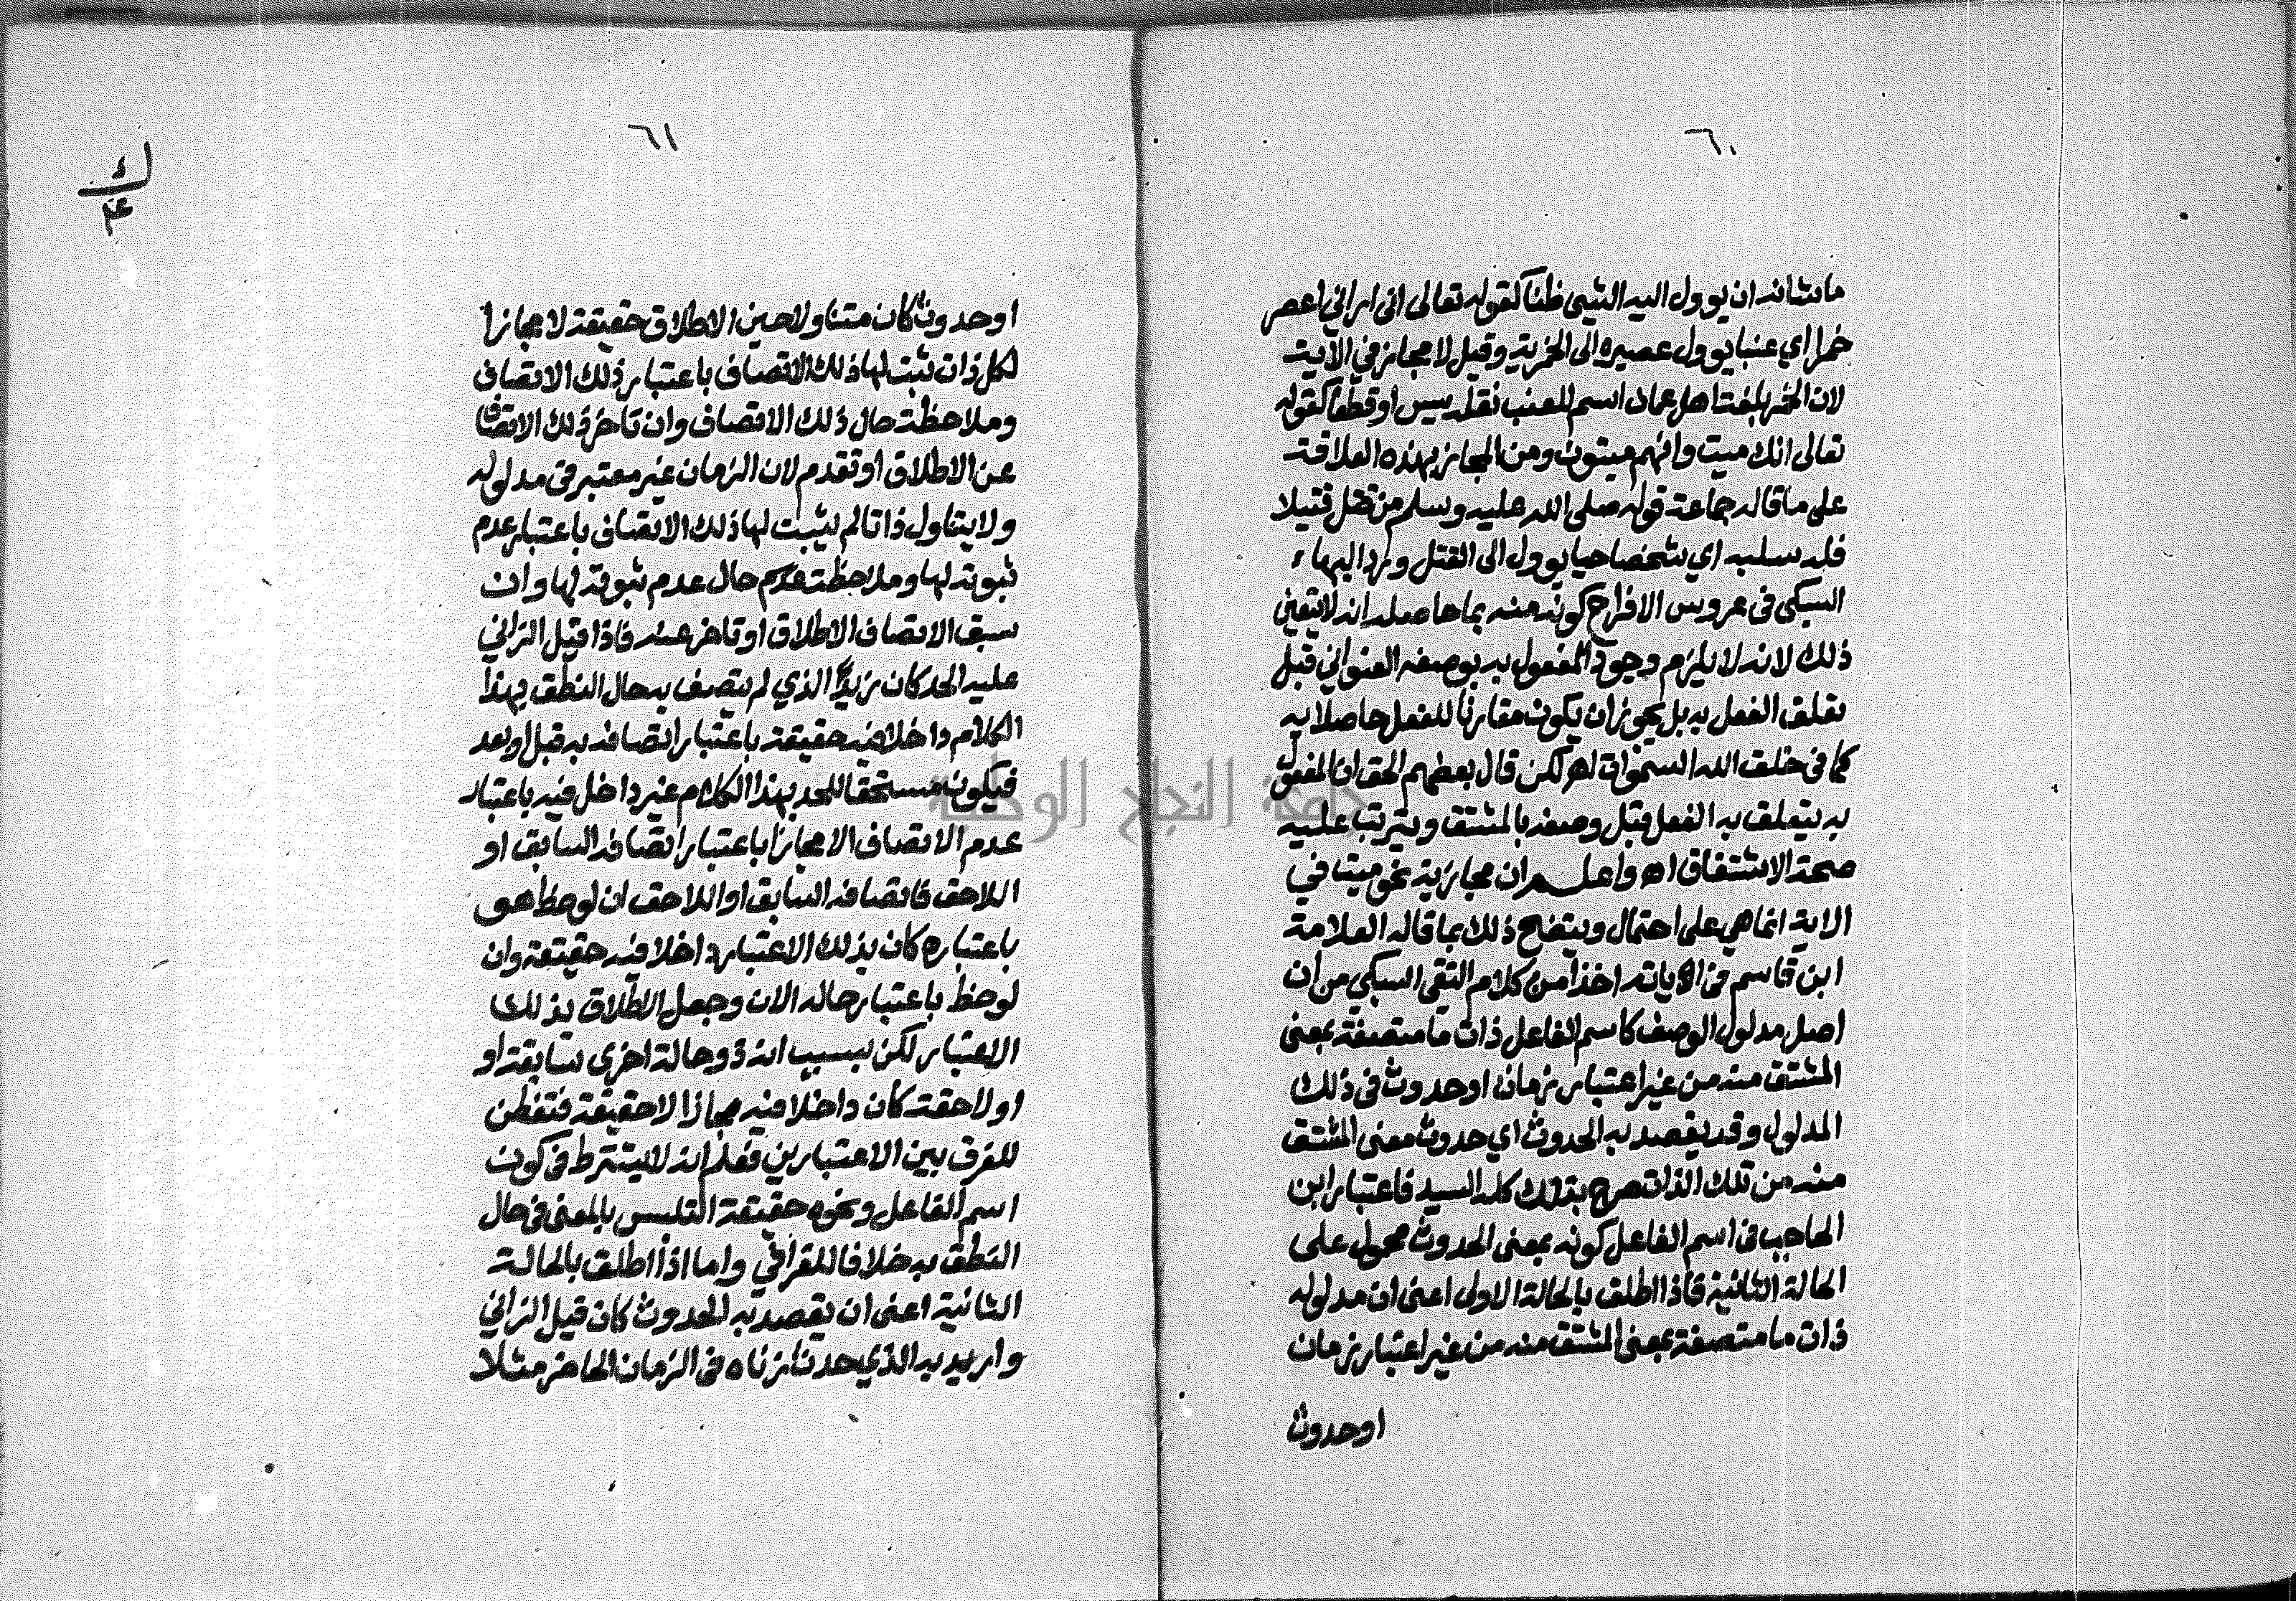 ٦٠
ما شانه ان يوول اليه الشيى ظنا كقوله تعالى انى اراني اعصر
خمرا اي عنبا يوول عصيره الى الخمرية وقيل لا مجاز في الاية
لان الخمر بلغة اهل عمان اسم للعنب نقله يس او قطعا كقوله
تعالى انك ميت وانهم ميتون ومن المجاز بهذه العلاقة
على ما قاله جماعة قوله صلى الله عليه وسلم من قتل قتيلا
فله سلبه اي شخصا حيا يوول الى القتل ورد البهاء
السبكى فى عروس الافراح كونه منه بما حاصله انه لا يتعين
ذلك لانه لا يلزم وجود المفعول به بوصفه العنواني قبل
تعلق الفعل به بل يجوز ان يكون مقارنا للفعل حاصلا به
كما فى خلق الله السموات اهـ لكن قال بعضهم الحق ان المفعول
به يتعلق به الفعل قبل وصفه بالمشتق ويترتب عليه
صحة الاشتقاق اهـ واعلم ان مجازية نحو ميت في
الاية انما هي على احتمال ويتضح ذلك بما قاله العلامة
ابن قاسم في اياته اخذا من كلام التقى السبكي من ان
اصل مدلول الوصف كاسم الفاعل ذات ما متصفة بمعنى
المشتق منه من غير اعتبار زمان او حدوث فى ذلك
المدلول وقد يقصد به الحدوث اي حدوث معنى المشتق
منه من تلك الذات صرح بذلك كله السيد فاعتبار ابن
الحاجب فى اسم الفاعل كونه بمعنى الحدوث محمول على
الحالة الثانية فاذا اطلق بالحالة الاولى اعنى ان مدلوله
ذات ما متصفة بمعنى المشتق منه من غير اعتبار زمان
او حدوث
٦١
او حدوث كان متناولا حين الاطلاق حقيقة لا مجازا
لكل ذات ثبت لها ذلك الاتصاف باعتبار ذلك الاتصاف
وملاحظة حال ذلك الاتصاف وان تاخر ذلك الاتصاف
عن الاطلاق او تقدم لان الزمان غير معتبر فى مدلوله
ولا يتناول ذاتا لم يثبت لها ذلك الاتصاف باعتبار عدم
ثبوته لها وملاحظة حال عدم ثبوته لها وان
سبق الاتصاف الاطلاق او تاخر عنه فاذا قيل الزاني
عليه الحد كان زيد الذي لم يتصف به حال النطق بهذا
الكلام داخلا فيه حقيقة باعتبار اتصافه به قبل او بعد
فيكون مستحقا للحد بهذا الكلام غير داخل فيه باعتبار
عدم الاتصاف الا مجازا باعتبار اتصافه السابق او
اللاحق فاتصافه السابق او اللاحق ان لوحظ هو
باعتباره كان بذلك الاعتبار داخلا فيه حقيقة وان
لوحظ باعتبار حاله الان وجعل الاطلاق بذلك
الاعتبار لكن بسبب انه ذو حالة اخرى سابقة او
او لاحقة كان داخلا فيه مجازا لا حقيقة فتفطن
للفرق بين الاعتبارين فعلم انه لا يشترط فى كون
اسم الفاعل ونحوه حقيقة التلبس بالمعنى فى حال
النطق به خلافا للقرافي واما اذا اطلق بالحالة
الثانية اعنى ان يقصد به الحدوث كان قيل الزاني
واريد به الذي حدث زناه فى الزمان الحاضر مثلا
جامعة النجاح الوطنية